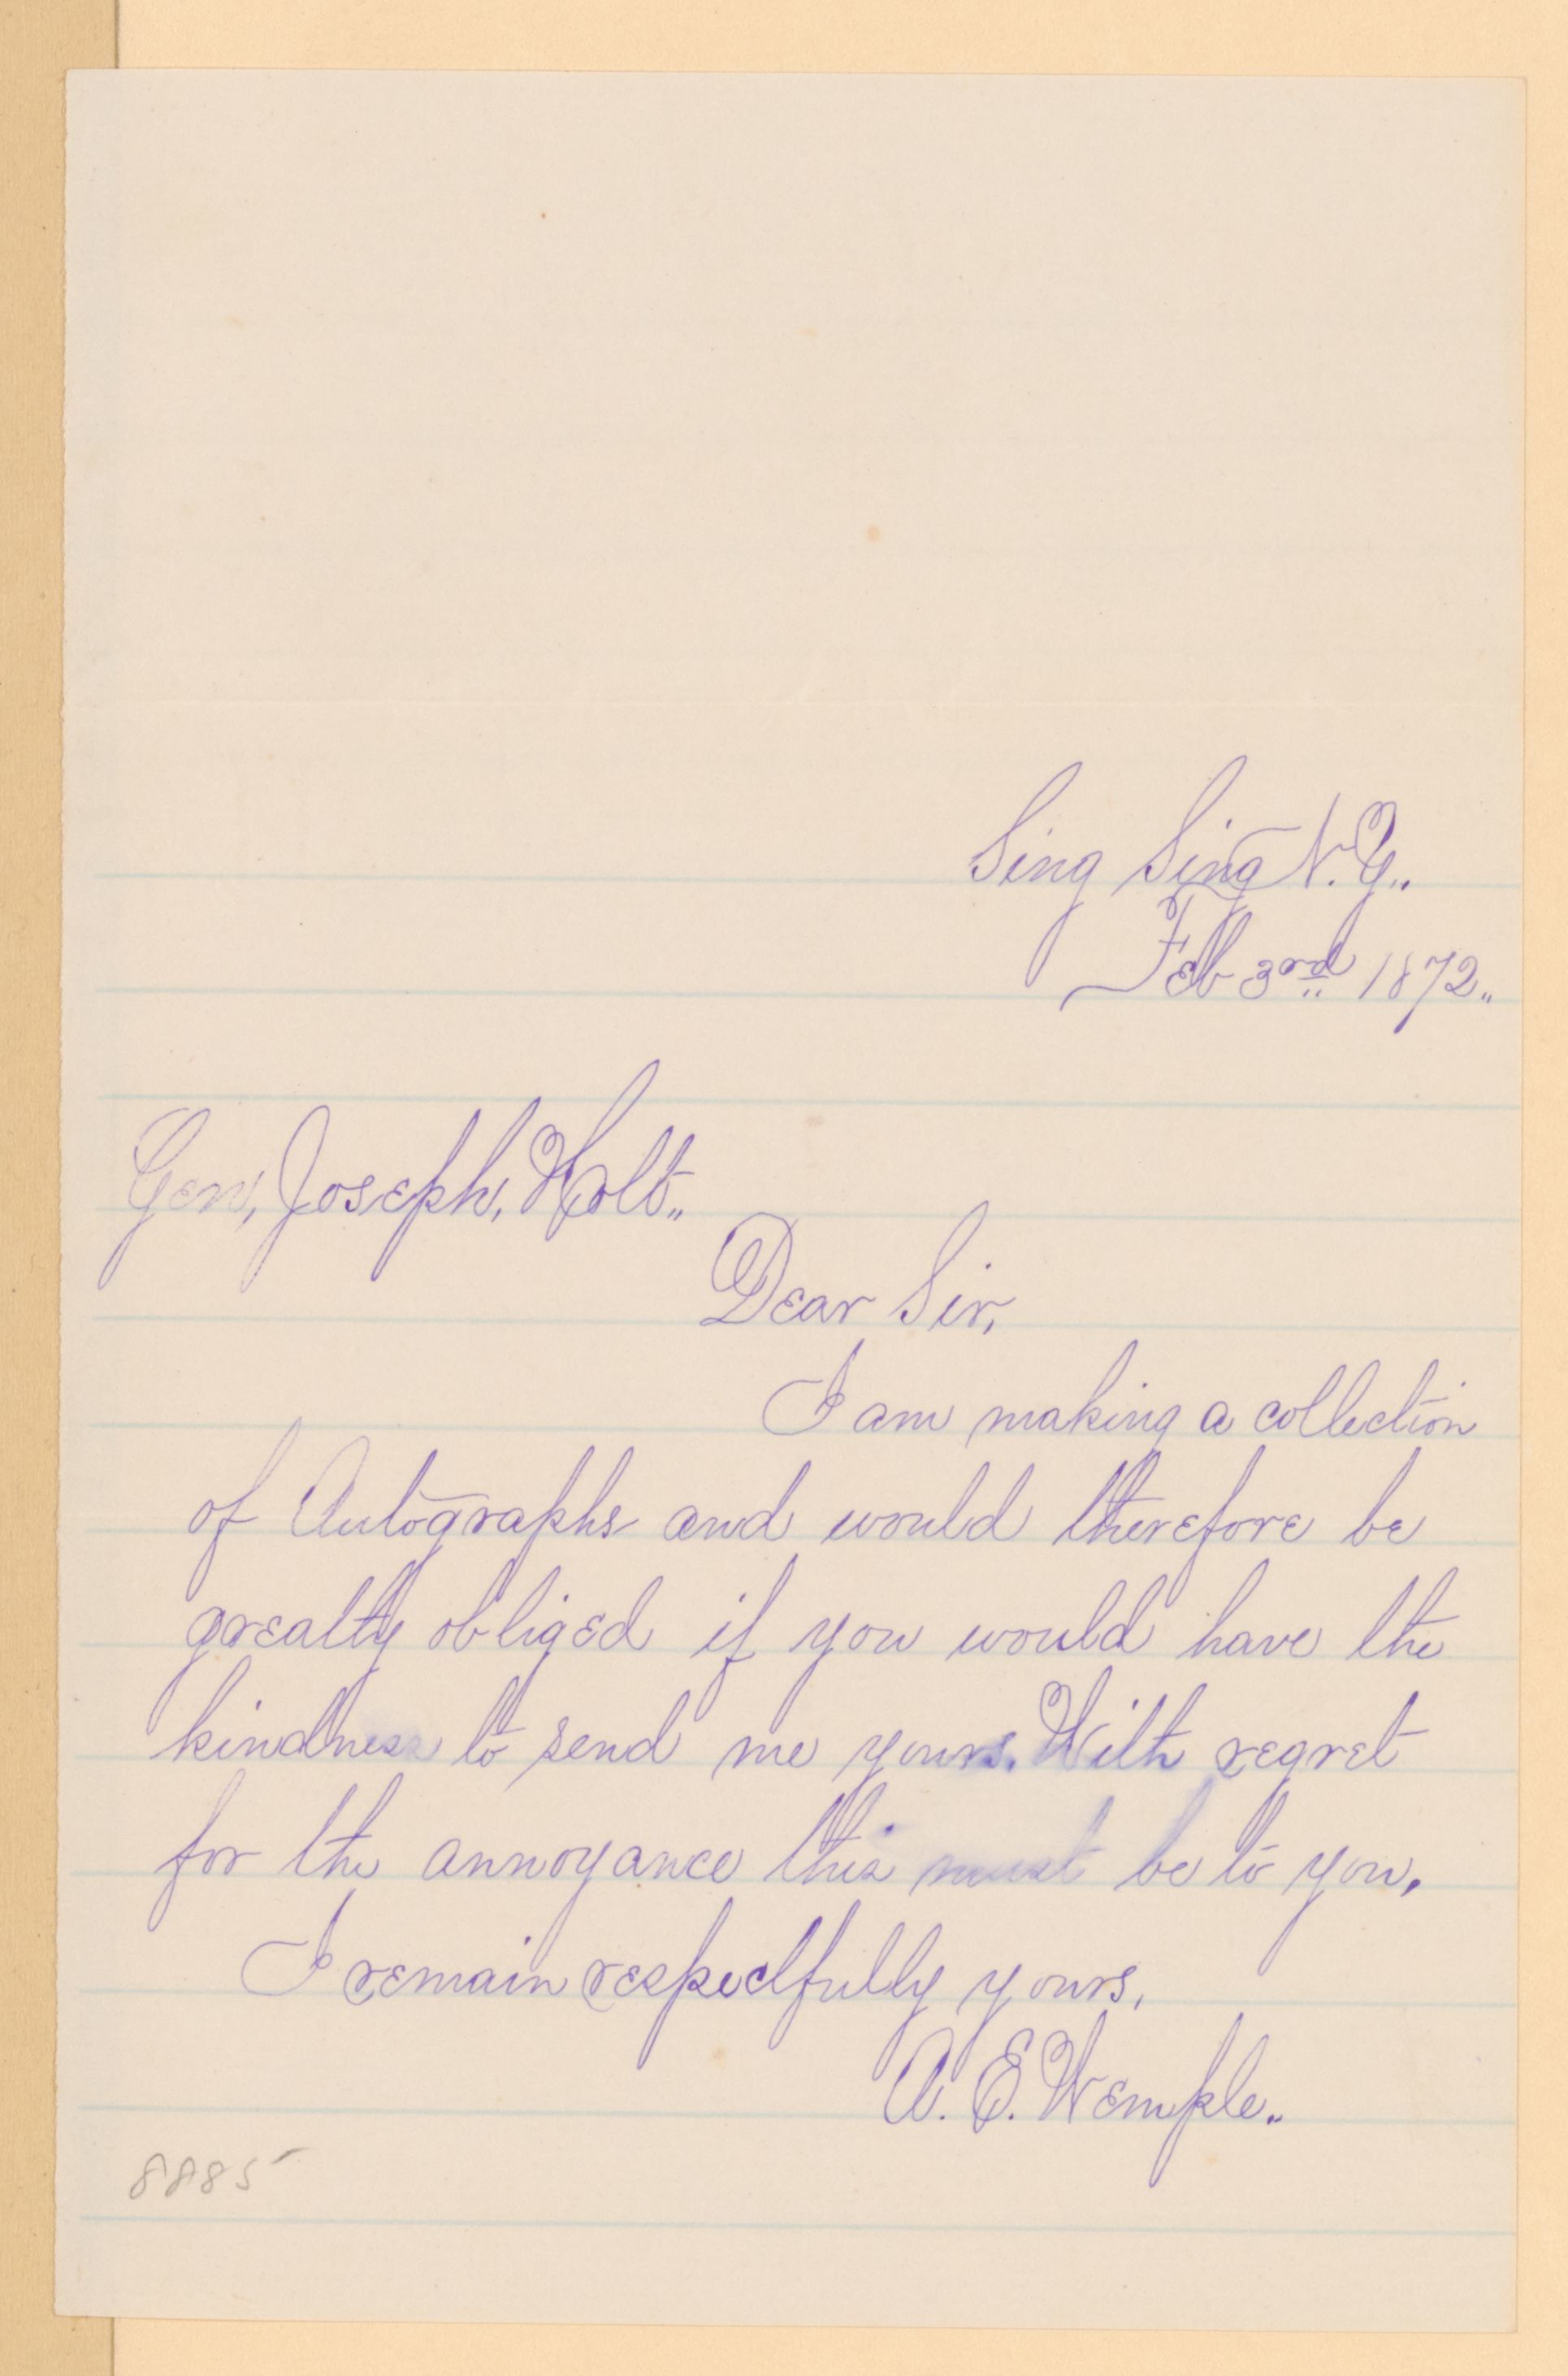 Sing Sing N.Y..
Feb 3rd 1872..
Gen, Joseph, Holt..
Dear Sir,
I am making a collection
of Autographs and would therefore be
grealty obliged if you would have the
kindness to send me yours. With regret
for the annoyance this must be to you.
I remain respectfully yours,
A. E. Wemple..
8885